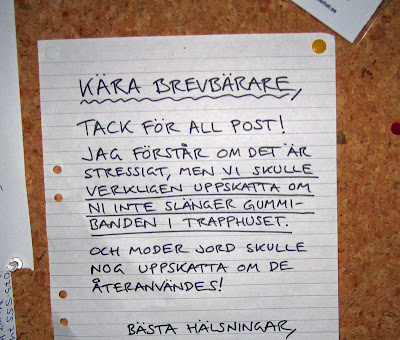 KÄRA BREVBÄRARE,
TACK FÖR ALL POST!
JAG FÖRSTÅR OM DET ÄR
STRESSIGT, MEN VI SKULLE
VERKLIGEN UPPSKATTA OM
NI INTE SLÄNGER GUMMI-
BANDEN I TRAPPHUSET.
OCH MODER JORD SKULLE
NOG UPPSKATTA OM DE
ÅTERANVÄNDES!
BÄSTA HÄLSNINGAR,